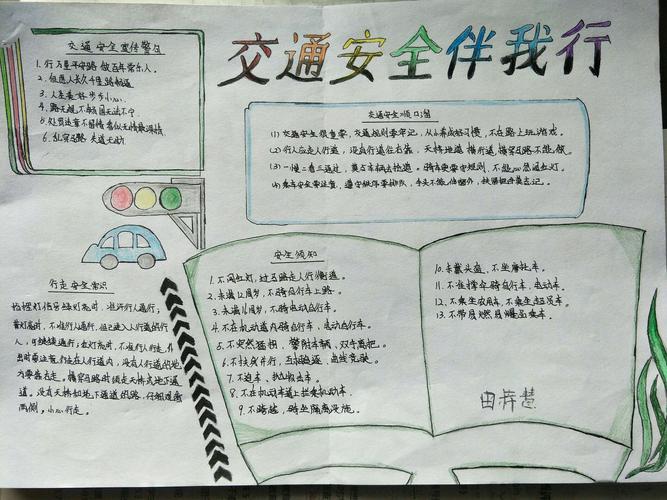 交通安全伴我行
交通安全宣传警句
1. 行万里平安路 做百年常乐人。
2. 但愿人长久 千里路畅通
3. 人生美好 步步小心
4. 路无规 不畅 国无法不宁
5. 处罚违章不留情 看似无情最深情
6. 乱穿马路 失道无助
交通安全顺口溜
(1) 交通安全很重要，交通规则要牢记，从小养成好习惯，不在路上玩游戏。
(2) 行人应走人行道，没有行道往右靠，天桥地道横行道，横穿马路不能做。
(3) 一慢二看三通过，莫与车辆去抢道。骑车更要守规则，不能心急闯红灯。
(4) 乘车安全要注意，遵守秩序要排队，手头不能伸窗外，扶紧把手莫忘记。
行走安全常识
指挥灯信号绿灯亮时，准许行人通行；
黄灯亮时，不准行人通行，但已进入人行道的行
人，可继续通行；红灯亮时，不准行人行走。外
出时要注意：行走在人行道内，没有人行道的地
方要靠右走。横穿马路时须走天桥或地下通
道。没有天桥和地下通道的路，仔细观察
两侧，小心行走。
安全须知
1. 不闯红灯，过马路走人行横道。
2. 未满12周岁，不骑自行车上路。
3. 未满16周岁，不骑电动自行车。
4. 不在机动道内骑自行车、电动自行车。
5. 不突然猛拐、攀附车辆、双手离把。
6. 不扶身并行、互相追逐、曲线竞驶。
7. 不追车、扒车
8. 不在机动车道上拦乘机动车。
9. 不跨越、骑坐隔离设施。
10. 未戴头盔，不坐摩托车。
11. 不准撑伞骑自行车、电动车。
12. 不乘坐农用车、不乘坐超员车。
13. 不带易燃易爆品乘车。